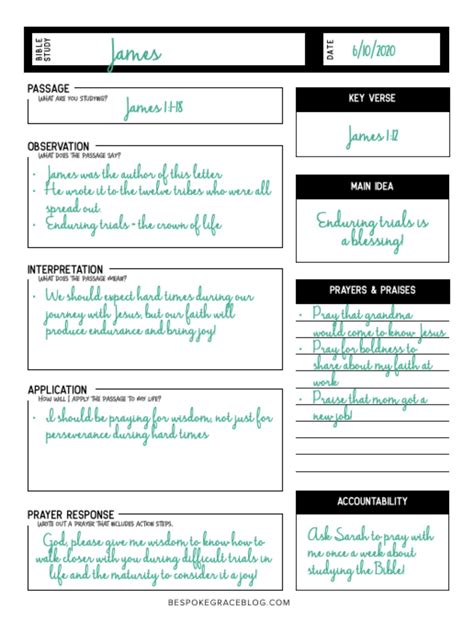 BIBLE
STUDY
James
DATE
6/10/2020
PASSAGE
WHAT ARE YOU STUDYING?
James 1:1-18
OBSERVATION
WHAT DOES THE PASSAGE SAY?
• James was the author of this letter
• He wrote it to the twelve tribes who were all
spread out.
• Enduring trials = the crown of life
INTERPRETATION
WHAT DOES THE PASSAGE MEAN?
• We should expect hard times during our
journey with Jesus, but our faith will
produce endurance and bring joy!
APPLICATION
HOW WILL I APPLY THE PASSAGE TO MY LIFE?
• I should be praying for wisdom, not just for
perseverance during hard times
PRAYER RESPONSE
WRITE OUT A PRAYER THAT INCLUDES ACTION STEPS.
God, please give me wisdom to know how to
walk closer with you during difficult trials in
life and the maturity to consider it a joy!
KEY VERSE
James 1:12
MAIN IDEA
Enduring trials is
a blessing!
PRAYERS & PRAISES
• Pray that grandma
would come to know Jesus
• Pray for boldness to
share about my faith at
work
• Praise that mom got a
new job!
ACCOUNTABILITY
Ask Sarah to pray with
me once a week about
studying the Bible!
BESPOKEGRACEBLOG.COM